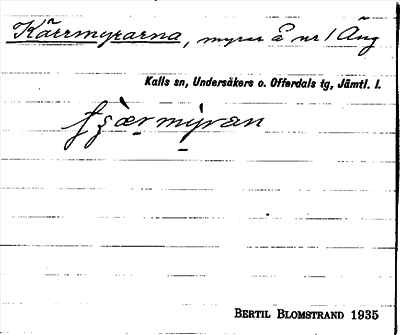 Kärrmyrarna, myrar å nr 1 Äng
Kalls sn, Undersåkers o. Offerdals tg, Jämtl. l.
myran
BERTIL BLOMSTRAND 1935